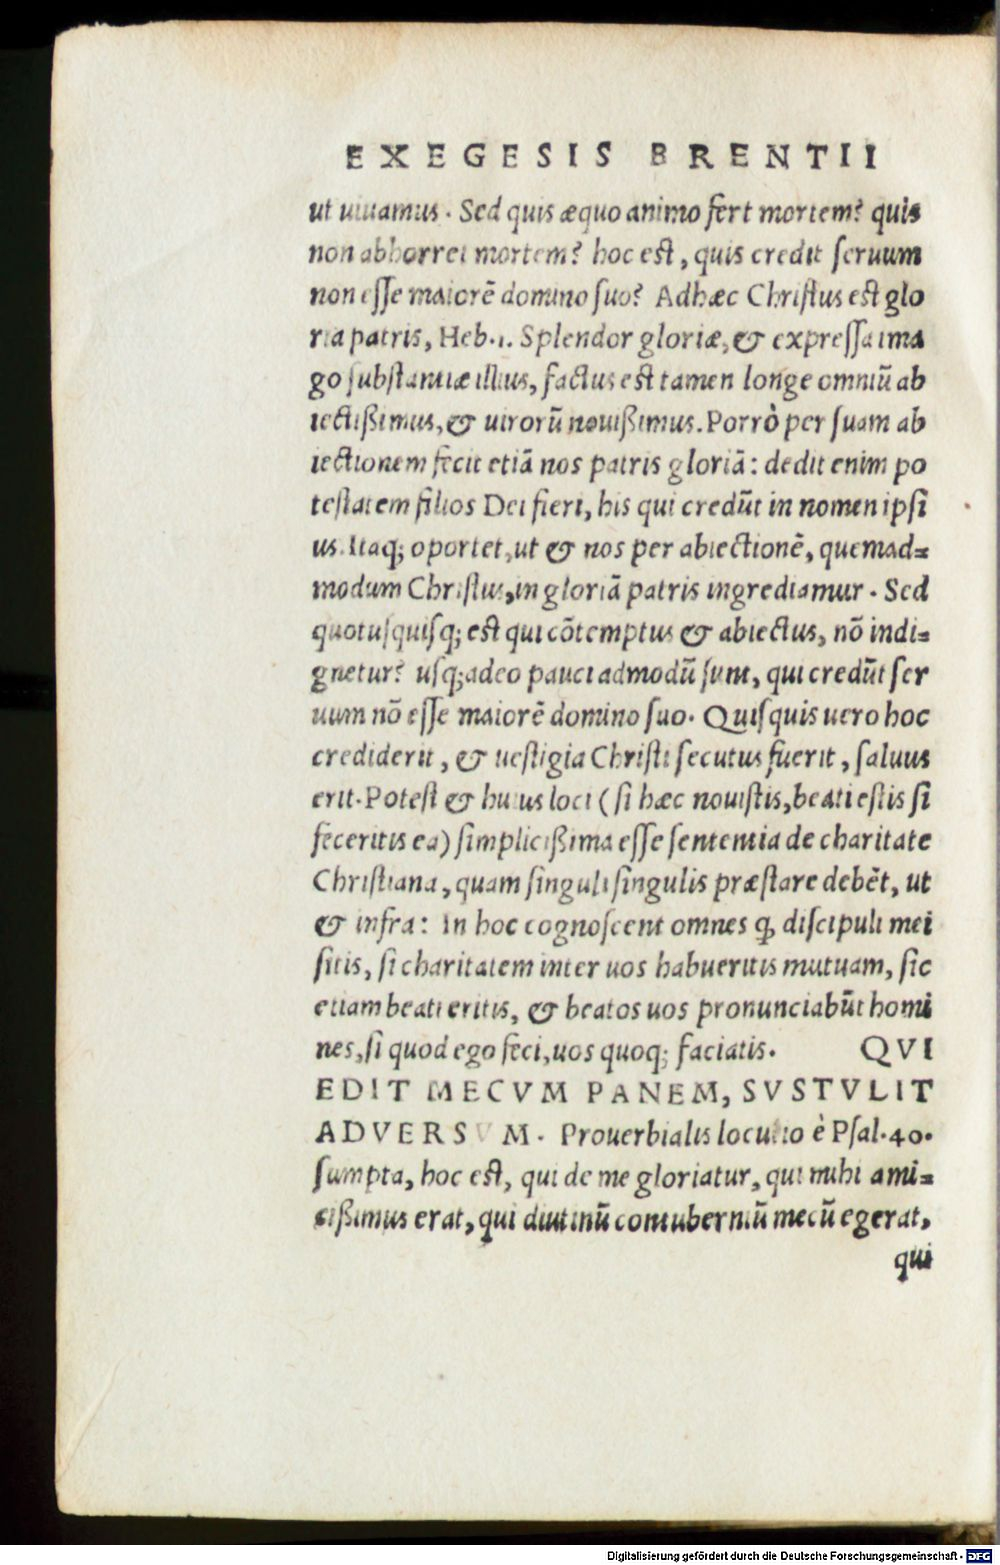 EXEGESIS BRENTII
ut uiuamus. Sed quis æquo animo fert mortem? quis
non abhorret mortem? hoc est, quis credit seruum
non esse maiorē domino suo? Adhæc Christus est glo
ria patris, Heb.1. Splendor gloriæ, & expressa ima
go substantiæ illius, factus est tamen longe omniū ab
iectißimus, & uirorū nouißimus. Porrò per suam ab
iectionem fecit etiā nos patris gloriā: dedit enim po
testatem filios Dei fieri, his qui credūt in nomen ipsi
us. Itaq; oportet, ut & nos per abiectionē, quemad=
modum Christus, in gloriā patris ingrediamur. Sed
quotusquisq; est qui cōtemptus & abiectus, nō indi=
gnetur? usq; adeo pauci admodū sunt, qui credūt ser
uum nō esse maiorē domino suo. Quisquis uero hoc
crediderit, & uestigia Christi secutus fuerit, saluus
erit. Potest & huius loci (si hæc nouistis, beati estis si
feceritis ea) simplicißima esse sententia de charitate
Christiana, quam singuli singulis præstare debēt, ut
& infra: In hoc cognoscent omnes ꝙ discipuli mei
sitis, si charitatem inter uos habueritis mutuam, sic
etiam beati eritis, & beatos uos pronunciabūt homi
nes, si quod ego feci, uos quoq; faciatis. QVI
EDIT MECVM PANEM, SVSTVLIT
ADVERSVM. Prouerbialis locutio è Psal.40.
sumpta, hoc est, qui de me gloriatur, qui mihi ami=
cißimus erat, qui diutinū contuberniū mecū egerat,
qui
Digitalisierung gefördert durch die Deutsche Forschungsgemeinschaft - DFG